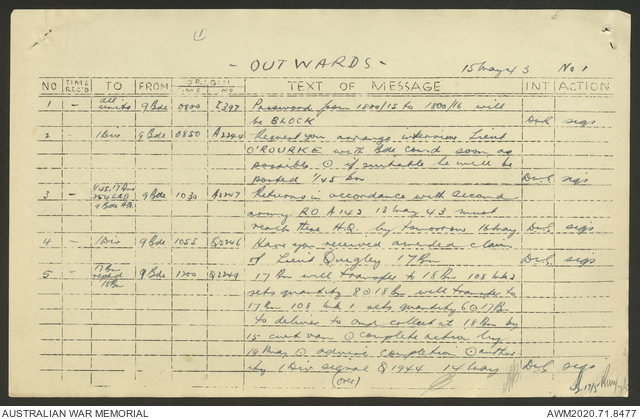 (1
- OUTWARDS -
15 May 43 No 1
NO TIME REC'D TO FROM ORIGIN TIME NO TEXT OF MESSAGE INT ACTION
1 - all units 9 Bde 0800 I397 Password from 1800/15 to 1800/16 will
be BLOCK sigs
2 - 1 Div 9 Bde 0850 A2244 Request you arrange interview Lieut
O'ROURKE with Bde Comd soon as
possible ⊙ if suitable he will be
posted 1/45 Bn sigs
3 - 9 Bde 1030 A2247 Returns in accordance with Second
9 Bde H.Q. army RO A142 13 May 43 must
reach these H.Q. by tomorrow 16 May sigs
4 - 1 Div 9 Bde 1055 Q2246 Have you received amended claim
of Lieut Quigley 17 Bn sigs
5 - 17 Bn 9 Bde 1200 Q2249 17 Bn will transfer to 18 Bn 108 mk 2
18 Bn sets quantity 8 ⊙ 18 Bn will transfer to
17 Bn 108 mk 1 sets quantity 6 ⊙ 17 Bn
to deliver to and collect at 18 Bn by
15 cwt van ⊙ complete action by
May ⊙ advise completion ⊙ author
ity 1 Div signal Q1944 14 May sigs
(over) 17/5
AUSTRALIAN WAR MEMORIAL AWM2020.71.8477